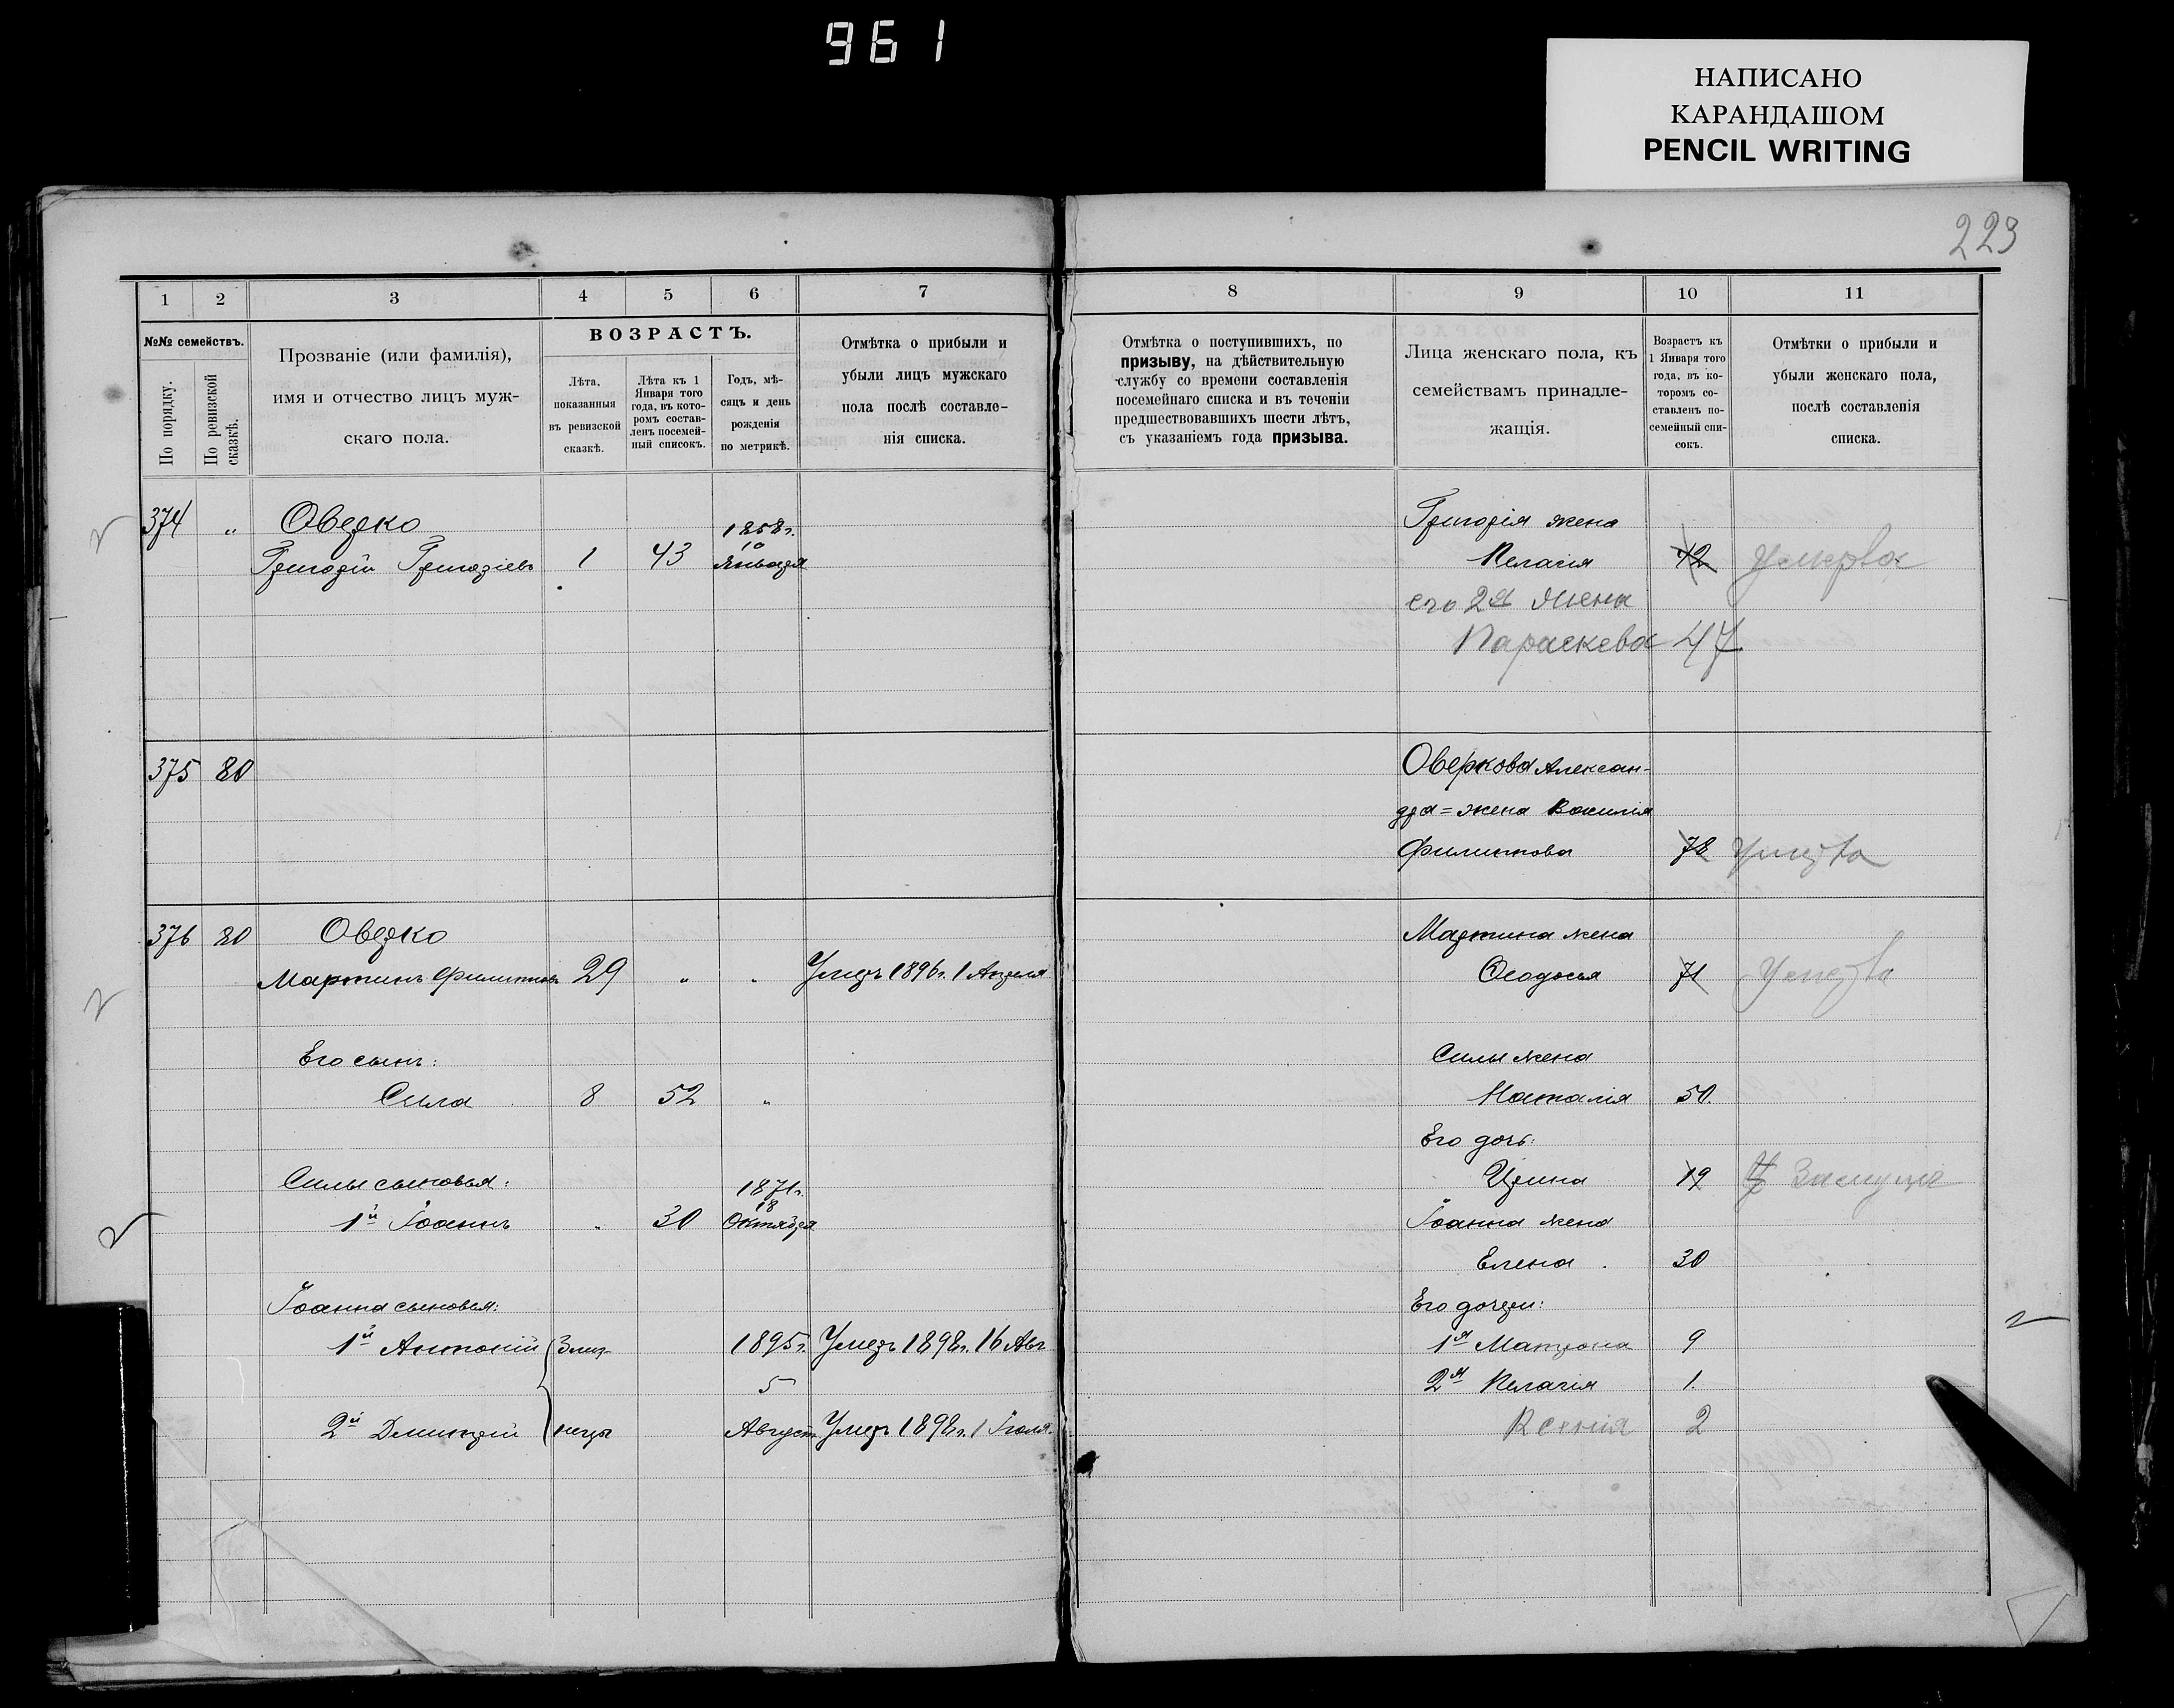 961
НАПИСАНО
КАРАНДАШОМ
PENCIL WRITING
223
1 2 3 4 5 6 7
№№ семействъ.
По порядку.
По ревизской сказкѣ.
Прозваніе (или фамилія),
имя и отчество лицъ муж-
скаго пола.
ВОЗРАСТЪ.
Лѣта,
показанныя
въ ревизской
сказкѣ.
Лѣта къ 1
Января того
года, въ кото-
ромъ состав-
ленъ посемей-
ный списокъ.
Годъ, мѣ-
сяцъ и день
рожденія
по метрикѣ.
Отмѣтка о прибыли и
убыли лицъ мужскаго
пола послѣ составле-
нія списка.
8 9 10 11
Отмѣтка о поступившихъ, по
призыву, на дѣйствительную
службу со времени составленія
посемейнаго списка и въ теченіи
предшествовавшихъ шести лѣтъ,
съ указаніемъ года призыва.
Лица женскаго пола, къ
семействамъ принадле-
жащія.
Возрастъ къ
1 Января того
года, въ ко-
торомъ со-
ставленъ по-
семейный спи-
сокъ.
Отмѣтки о прибыли и
убыли женскаго пола,
послѣ составленія
списка.
374 " Оверко 1858 г.
10
Григорій Григоріевъ 1 43 Января
Григорія жена
Пелагія 42 Умерла
его 2я Жена
Параскева 47
375 80
Оверкова Алексан-
дра = жена Василія
Филиппова 78 Умерла
376 80 Оверко
Мартинъ Филипповъ 29 " " Умеръ 1896 г. 1 Апреля
Его сынъ:
Сила 8 52 "
Силы сыновья: 1871 г.
18
1й Іоаннъ " 30 Октября
Іоанна сыновья:
1й Антоній Близ- 1895 г. Умеръ 1898 г. 16 Авг
5
2й Димитрій нецы Август Умеръ 1898 г. 1 Іюля.
Мартина жена
Ѳеодосья 71 Умерла
Силы жена
Наталія 50.
Его дочь:
Ирина 19 Замужа
Іоанна жена
Елена . 30
Его дочери:
1я Матрона 9
2я Пелагія 1.
Ксенія 2